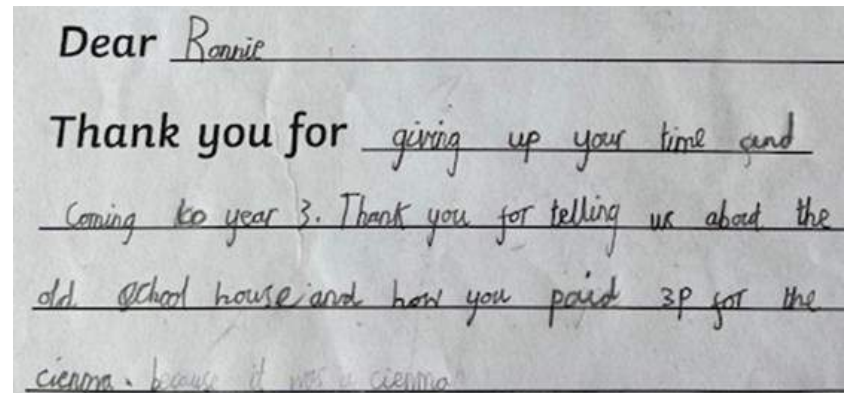 Dear Ronnie
Thank you for giving up your time and
Coming to year 3. Thank you for telling us about the
old school house and how you paid 3P for the
cienma. because it was a cienma